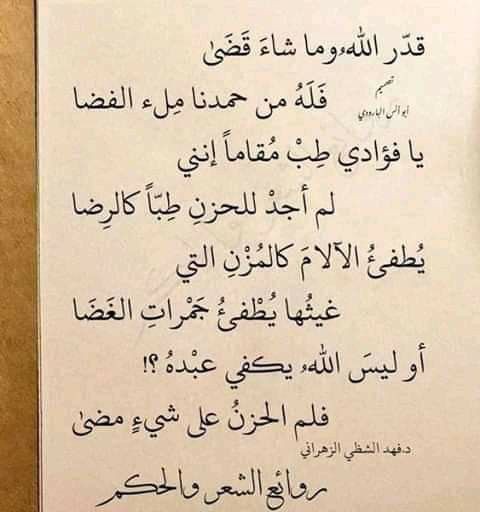 قدّر اللهُ وما شاءَ قَضَىٰ
تصميم
أبو أنس البارودي
فَلَهُ من حمدنا مِلء الفضا
يا فؤادي طِبْ مُقاماً إنني
لم أجدْ للحزنِ طِبّاً كالرِضا
يُطفئُ الآلامَ كالمُزْنِ التي
غيثُها يُطْفئُ جَمْراتِ الغَضَا
أو ليسَ اللهُ يكفي عبْدهُ ؟!
فلم الحزنُ على شيءٍ مضىٰ
د.فهد الشظي الزهراني
روائع الشعر والحكم